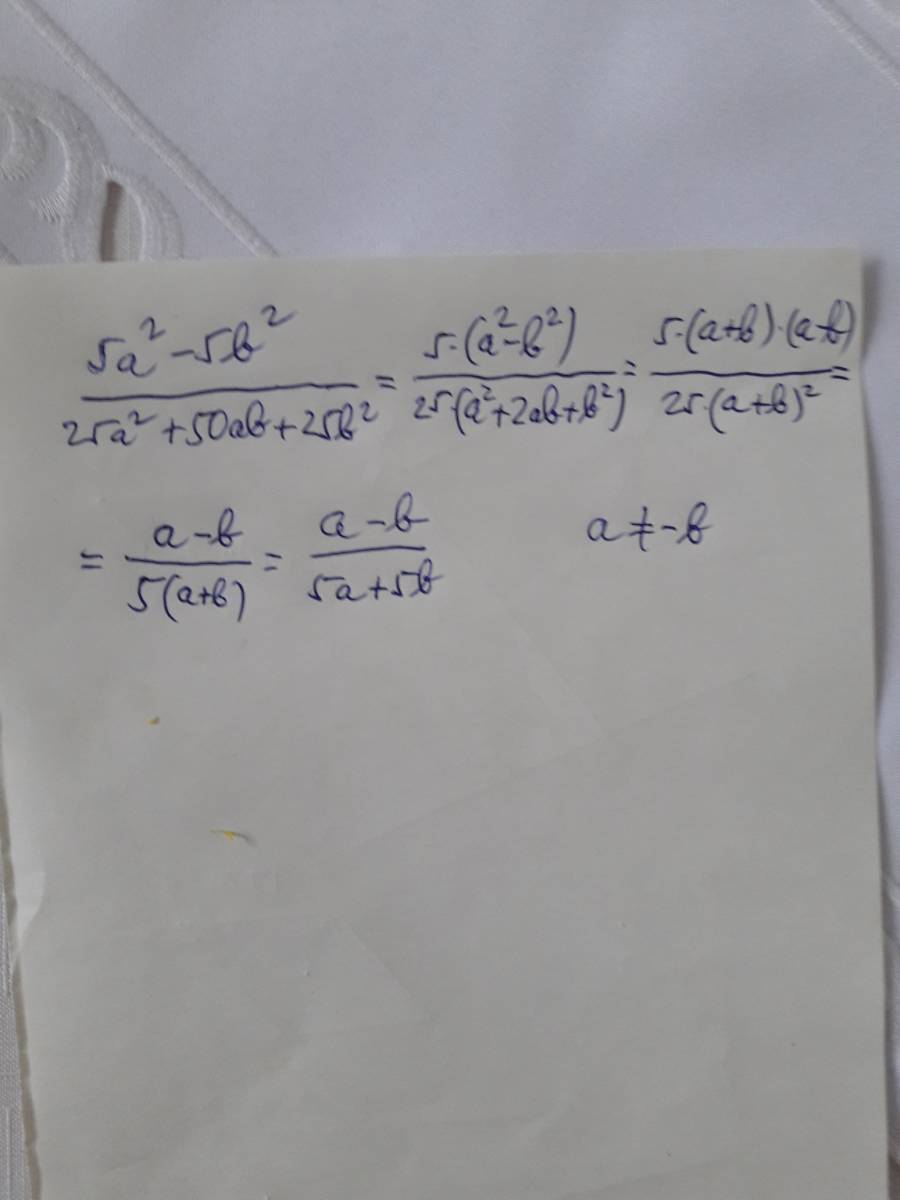 (5a² - 5b²)/(25a² + 50ab + 25b²) = (5·(a² - b²))/(25·(a² + 2ab + b²)) = (5·(a+b)·(a-b))/(25·(a+b)²) =
= (a - b)/(5(a+b)) = (a - b)/(5a + 5b) a ≠ -b